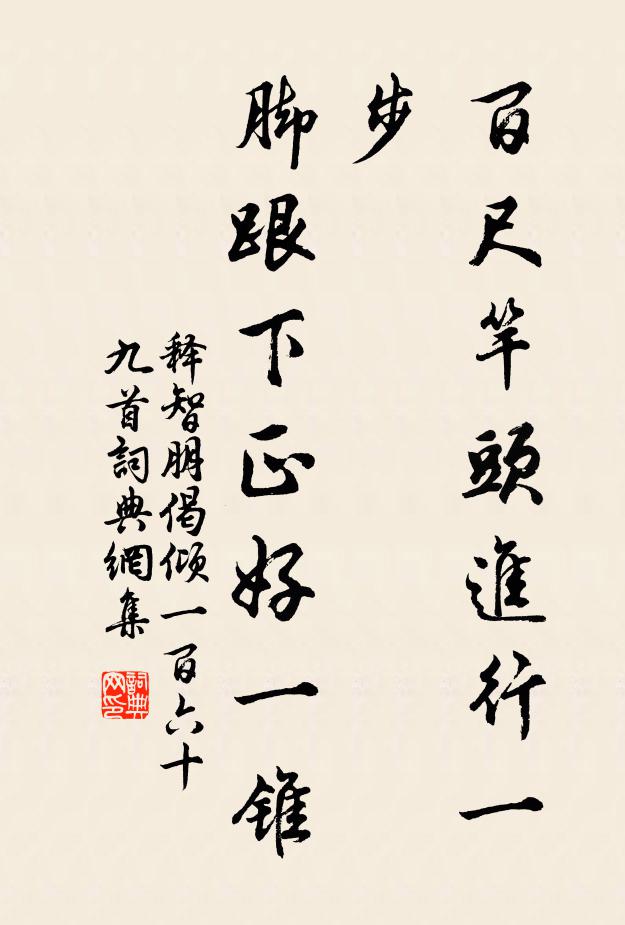 百尺竿頭進行一
步
脚跟下正好一錐
释智朋偈傾一百六十
九首詞典網集
詞典
网印